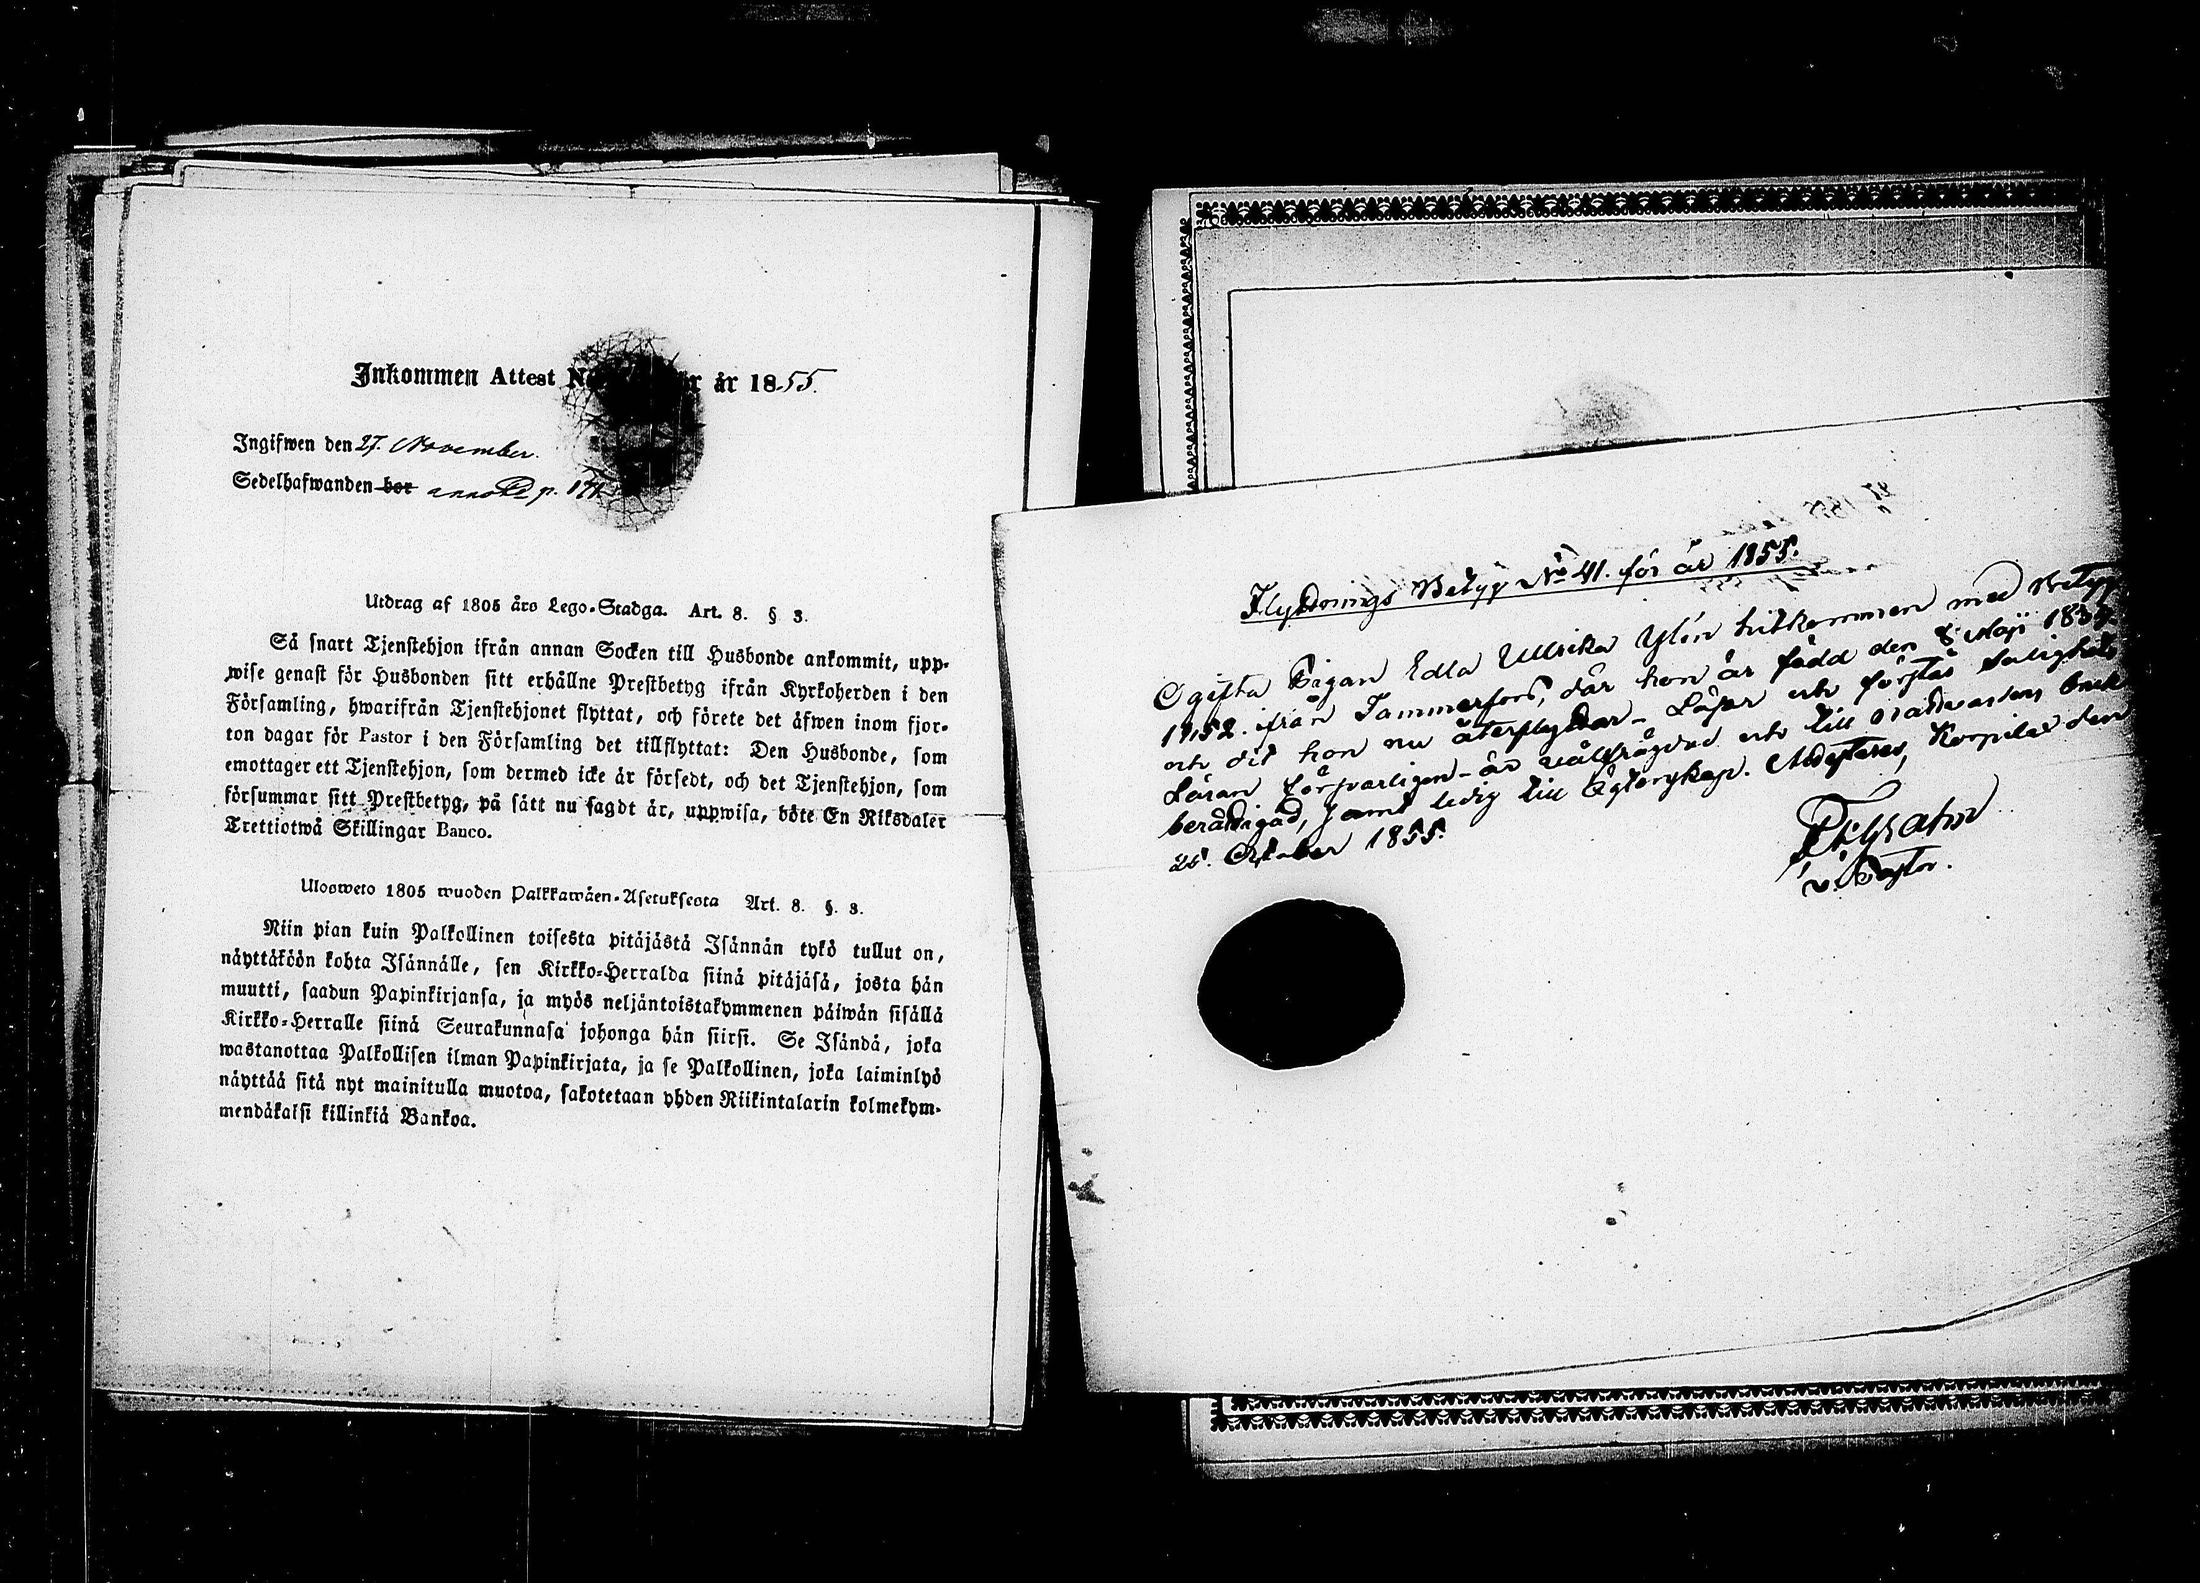 Inkommen Attest N r år 1855.
Ingifwen den 27. November.
Sedelhafwanden bor p. 171
Utdrag af 1805 års Lego-Stadga. Art. 8. § 3.
Så snart Tjenstehjon ifrån annan Socken till Husbonde ankommit, upp-
wise genast för Husbonden sitt erhållne Prestbetyg ifrån Kyrkoherden i den
Församling, hwarifrån Tjenstehjonet flyttat, och förete det äfwen inom fjor-
ton dagar för Pastor i den Församling det tillflyttat: Den Husbonde, som
emottager ett Tjenstehjon, som dermed icke är försedt, och det Tjenstehjon, som
försummar sitt Prestbetyg, på sätt nu sagdt är, uppwisa, böte En Riksdaler
Trettiotwå Skillingar Banco.
Ulosweto 1805 wuoden Palkkawäen-Asetuksesta Art. 8. §. 3.
Niin pian kuin Palkollinen toisesta pitäjästä Isännän tykö tullut on,
näyttäköön kohta Isännälle, sen Kirkko-Herralda siinä pitäjäsä, josta hän
muutti, saadun Papinkirjansa, ja myös neljäntoistakymmenen päiwän sisällä
Kirkko-Herralle siinä Seurakunnasa johonga hän siirsi. Se Isändä, joka
wastanottaa Palkollisen ilman Papinkirjata, ja se Palkollinen, joka laiminlyö
näyttää sitä nyt mainitulla muotoa, sakotetaan yhden Riikintalarin kolmekym-
mendäkaksi killinkiä Bankoa.
Flyttnings Betyg No 41. för år 1855.
Ogifta Pigan Edla Ullrika Ylén hitkommen med Betyg
1852. ifrån Tammerfors, där hon är född den 8 Maji 183
och dit hon nu återflyttar - Läser och förstår Salighets
Läran försvarligen - är välfrägdad och till Nattvardens bruk
berättigad, samt ledig till Ägtenskap. Attesteras, Korpilax den
25. October 1855.
v. Pastor.